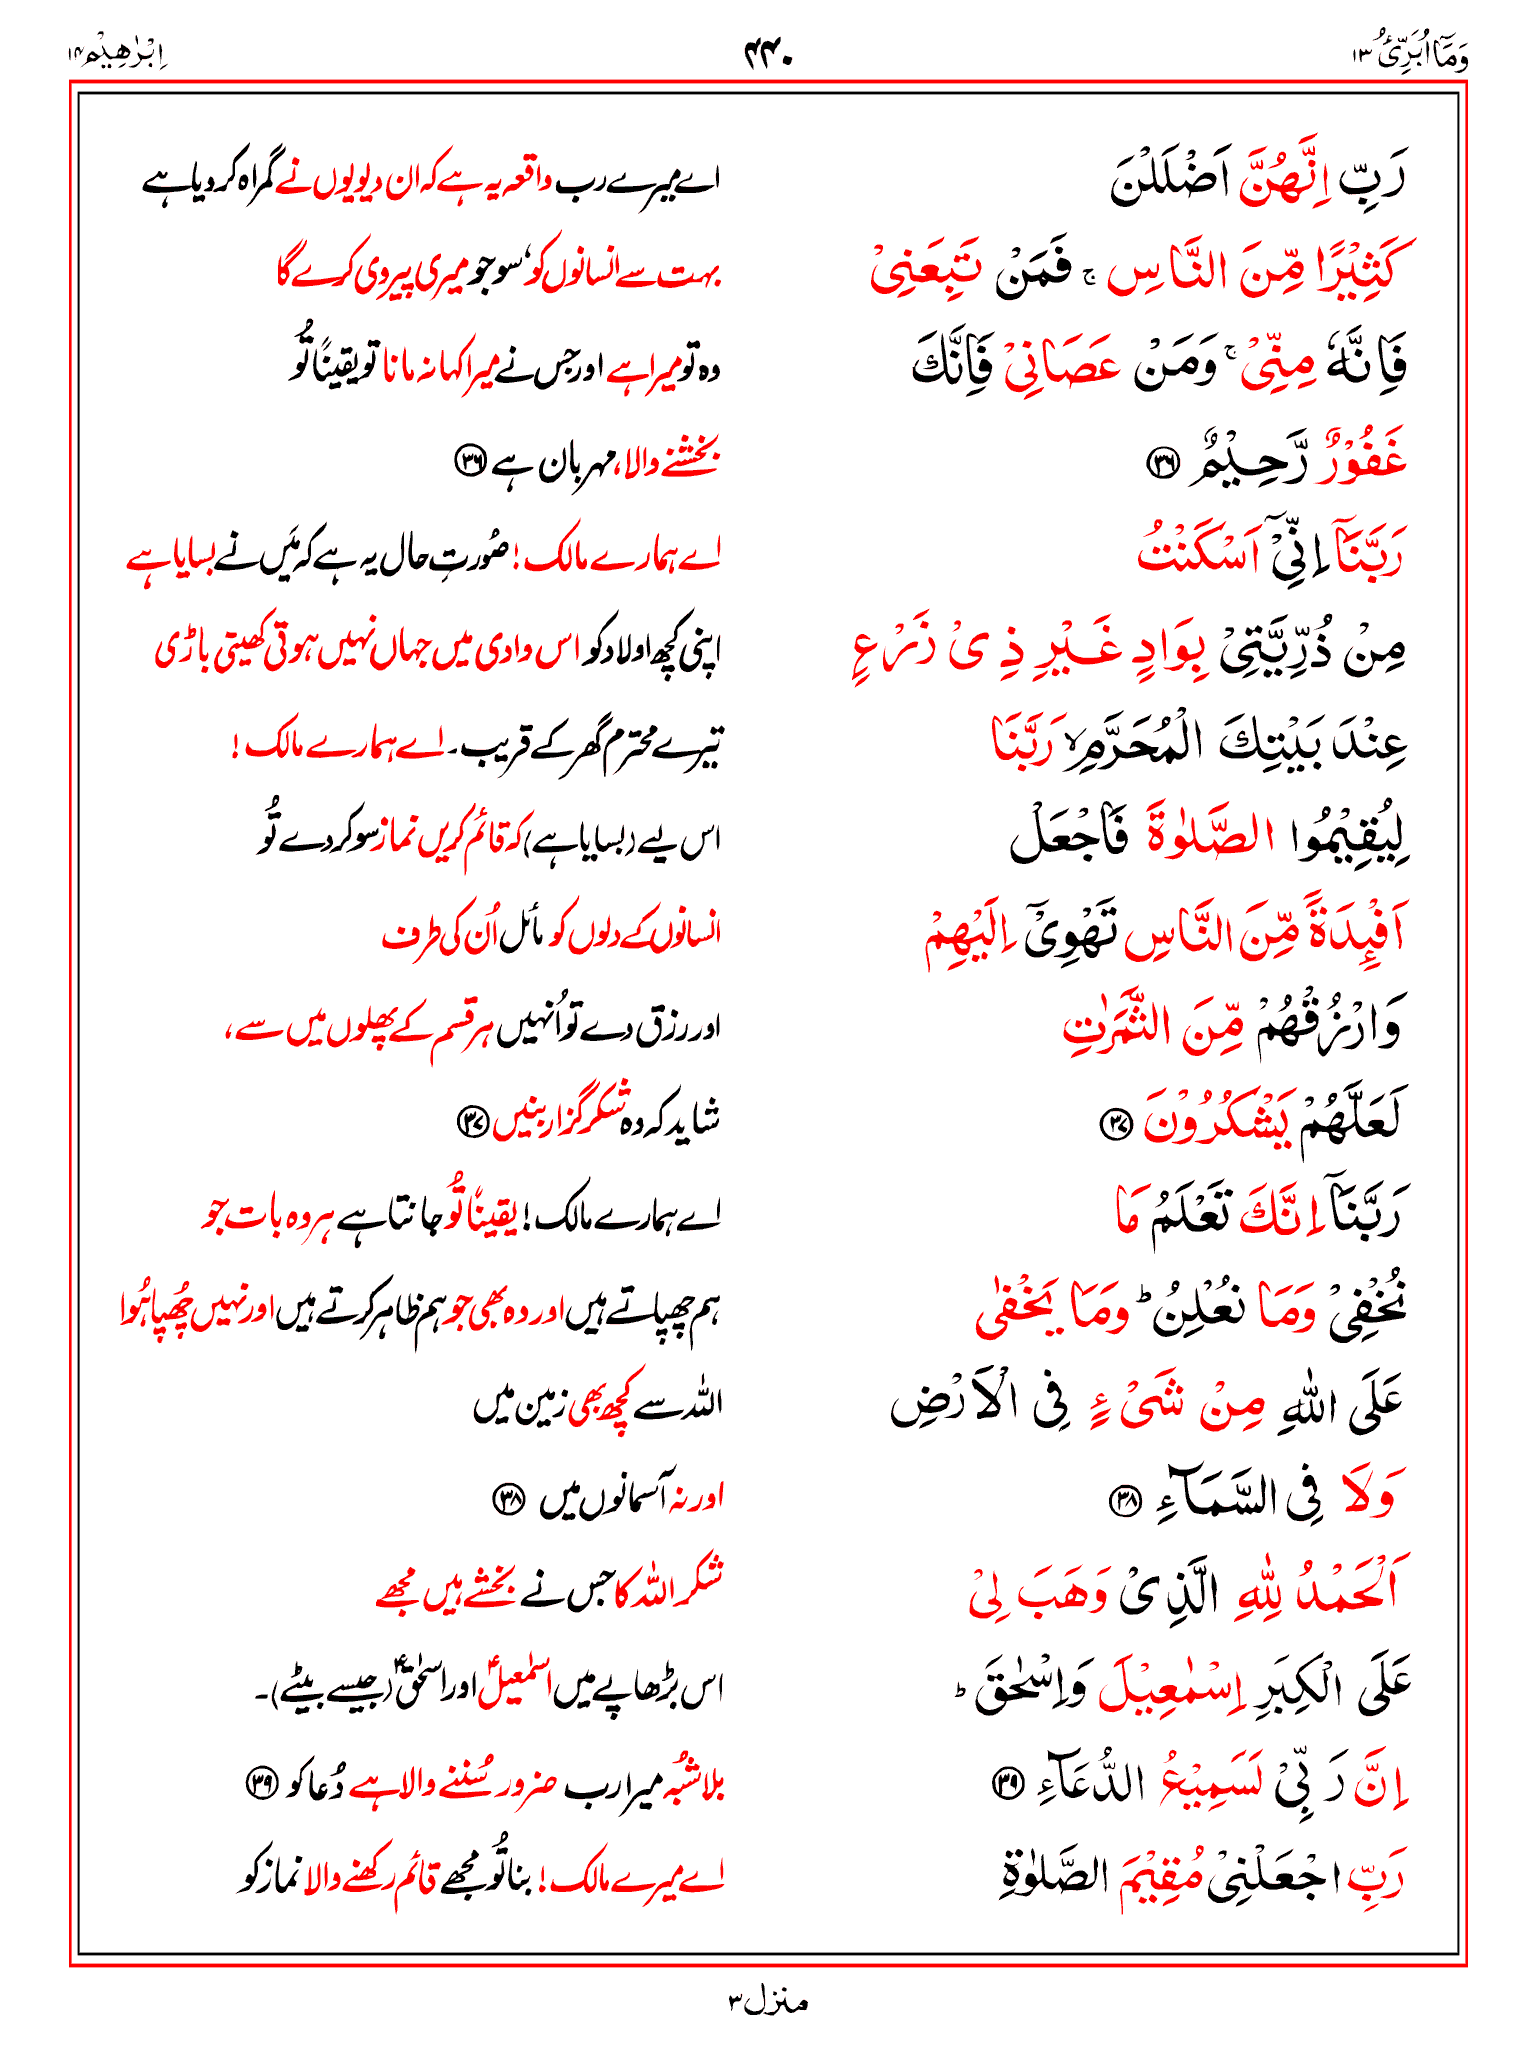 وَمَآ اُبَرِّئُ ۱۳
۴۴۰
اِبْرٰهِيْم ۱۴
رَبِّ اِنَّهُنَّ اَضْلَلْنَ
اے میرے رب واقعہ یہ ہے کہ ان دیویوں نے گمراہ کر دیا ہے
كَثِيْرًا مِّنَ النَّاسِ ۚ فَمَنْ تَبِعَنِيْ
بہت سے انسانوں کو، سو جو میری پیروی کرے گا
فَاِنَّهٗ مِنِّيْ ۚ وَمَنْ عَصَانِيْ فَاِنَّكَ
وہ تو میرا ہے اور جس نے میرا کہا نہ مانا تو یقیناً تُو
غَفُوْرٌ رَّحِيْمٌ ﴿۳۶﴾
بخشنے والا، مہربان ہے ﴿۳۶﴾
رَبَّنَآ اِنِّيْٓ اَسْكَنْتُ
اے ہمارے مالک! صُورتِ حال یہ ہے کہ مَیں نے بسایا ہے
مِنْ ذُرِّيَّتِيْ بِوَادٍ غَيْرِ ذِيْ زَرْعٍ
اپنی کچھ اولاد کو اس وادی میں جہاں نہیں ہوتی کھیتی باڑی
عِنْدَ بَيْتِكَ الْمُحَرَّمِ ۙ رَبَّنَا
تیرے محترم گھر کے قریب۔ اے ہمارے مالک!
لِيُقِيْمُوا الصَّلٰوةَ فَاجْعَلْ
اس لیے (بسایا ہے) کہ قائم کریں نماز سو کر دے تُو
اَفْـِٕدَةً مِّنَ النَّاسِ تَهْوِيْٓ اِلَيْهِمْ
انسانوں کے دلوں کو مائل اُن کی طرف
وَارْزُقْهُمْ مِّنَ الثَّمَرٰتِ
اور رزق دے تو اُنہیں ہر قسم کے پھلوں میں سے،
لَعَلَّهُمْ يَشْكُرُوْنَ ﴿۳۷﴾
شاید کہ وہ شکر گزار بنیں ﴿۳۷﴾
رَبَّنَآ اِنَّكَ تَعْلَمُ مَا
اے ہمارے مالک! یقیناً تُو جانتا ہے ہر وہ بات جو
نُخْفِيْ وَمَا نُعْلِنُ ؕ وَمَا يَخْفٰى
ہم چھپاتے ہیں اور وہ بھی جو ہم ظاہر کرتے ہیں اور نہیں چُھپا ہُوا
عَلَى اللّٰهِ مِنْ شَيْءٍ فِي الْاَرْضِ
اللہ سے کچھ بھی زمین میں
وَلَا فِي السَّمَآءِ ﴿۳۸﴾
اور نہ آسمانوں میں ﴿۳۸﴾
اَلْحَمْدُ لِلّٰهِ الَّذِيْ وَهَبَ لِيْ
شکر اللہ کا جس نے بخشے ہیں مجھے
عَلَى الْكِبَرِ اِسْمٰعِيْلَ وَاِسْحٰقَ ؕ
اس بڑھاپے میں اسمٰعیلؑ اور اسحٰقؑ (جیسے بیٹے)۔
اِنَّ رَبِّيْ لَسَمِيْعُ الدُّعَآءِ ﴿۳۹﴾
بلا شبُہ میرا رب ضرور سُننے والا ہے دُعا کو ﴿۳۹﴾
رَبِّ اجْعَلْنِيْ مُقِيْمَ الصَّلٰوةِ
اے میرے مالک! بنا تُو مجھے قائم رکھنے والا نماز کو
منزل ۳